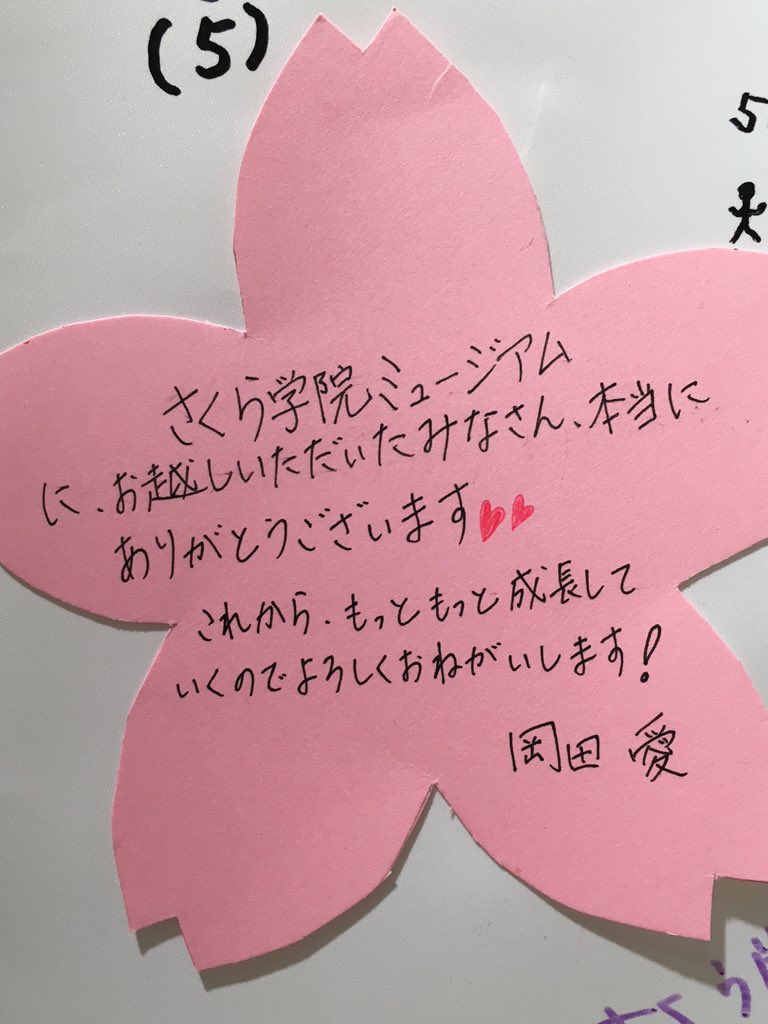 (5)
5
さくら学院ミュージアム
に、お越しいただいたみなさん、本当に
ありがとうございます♥♥
これから、もっともっと成長して
いくのでよろしくおねがいします!
岡田 愛
さくら